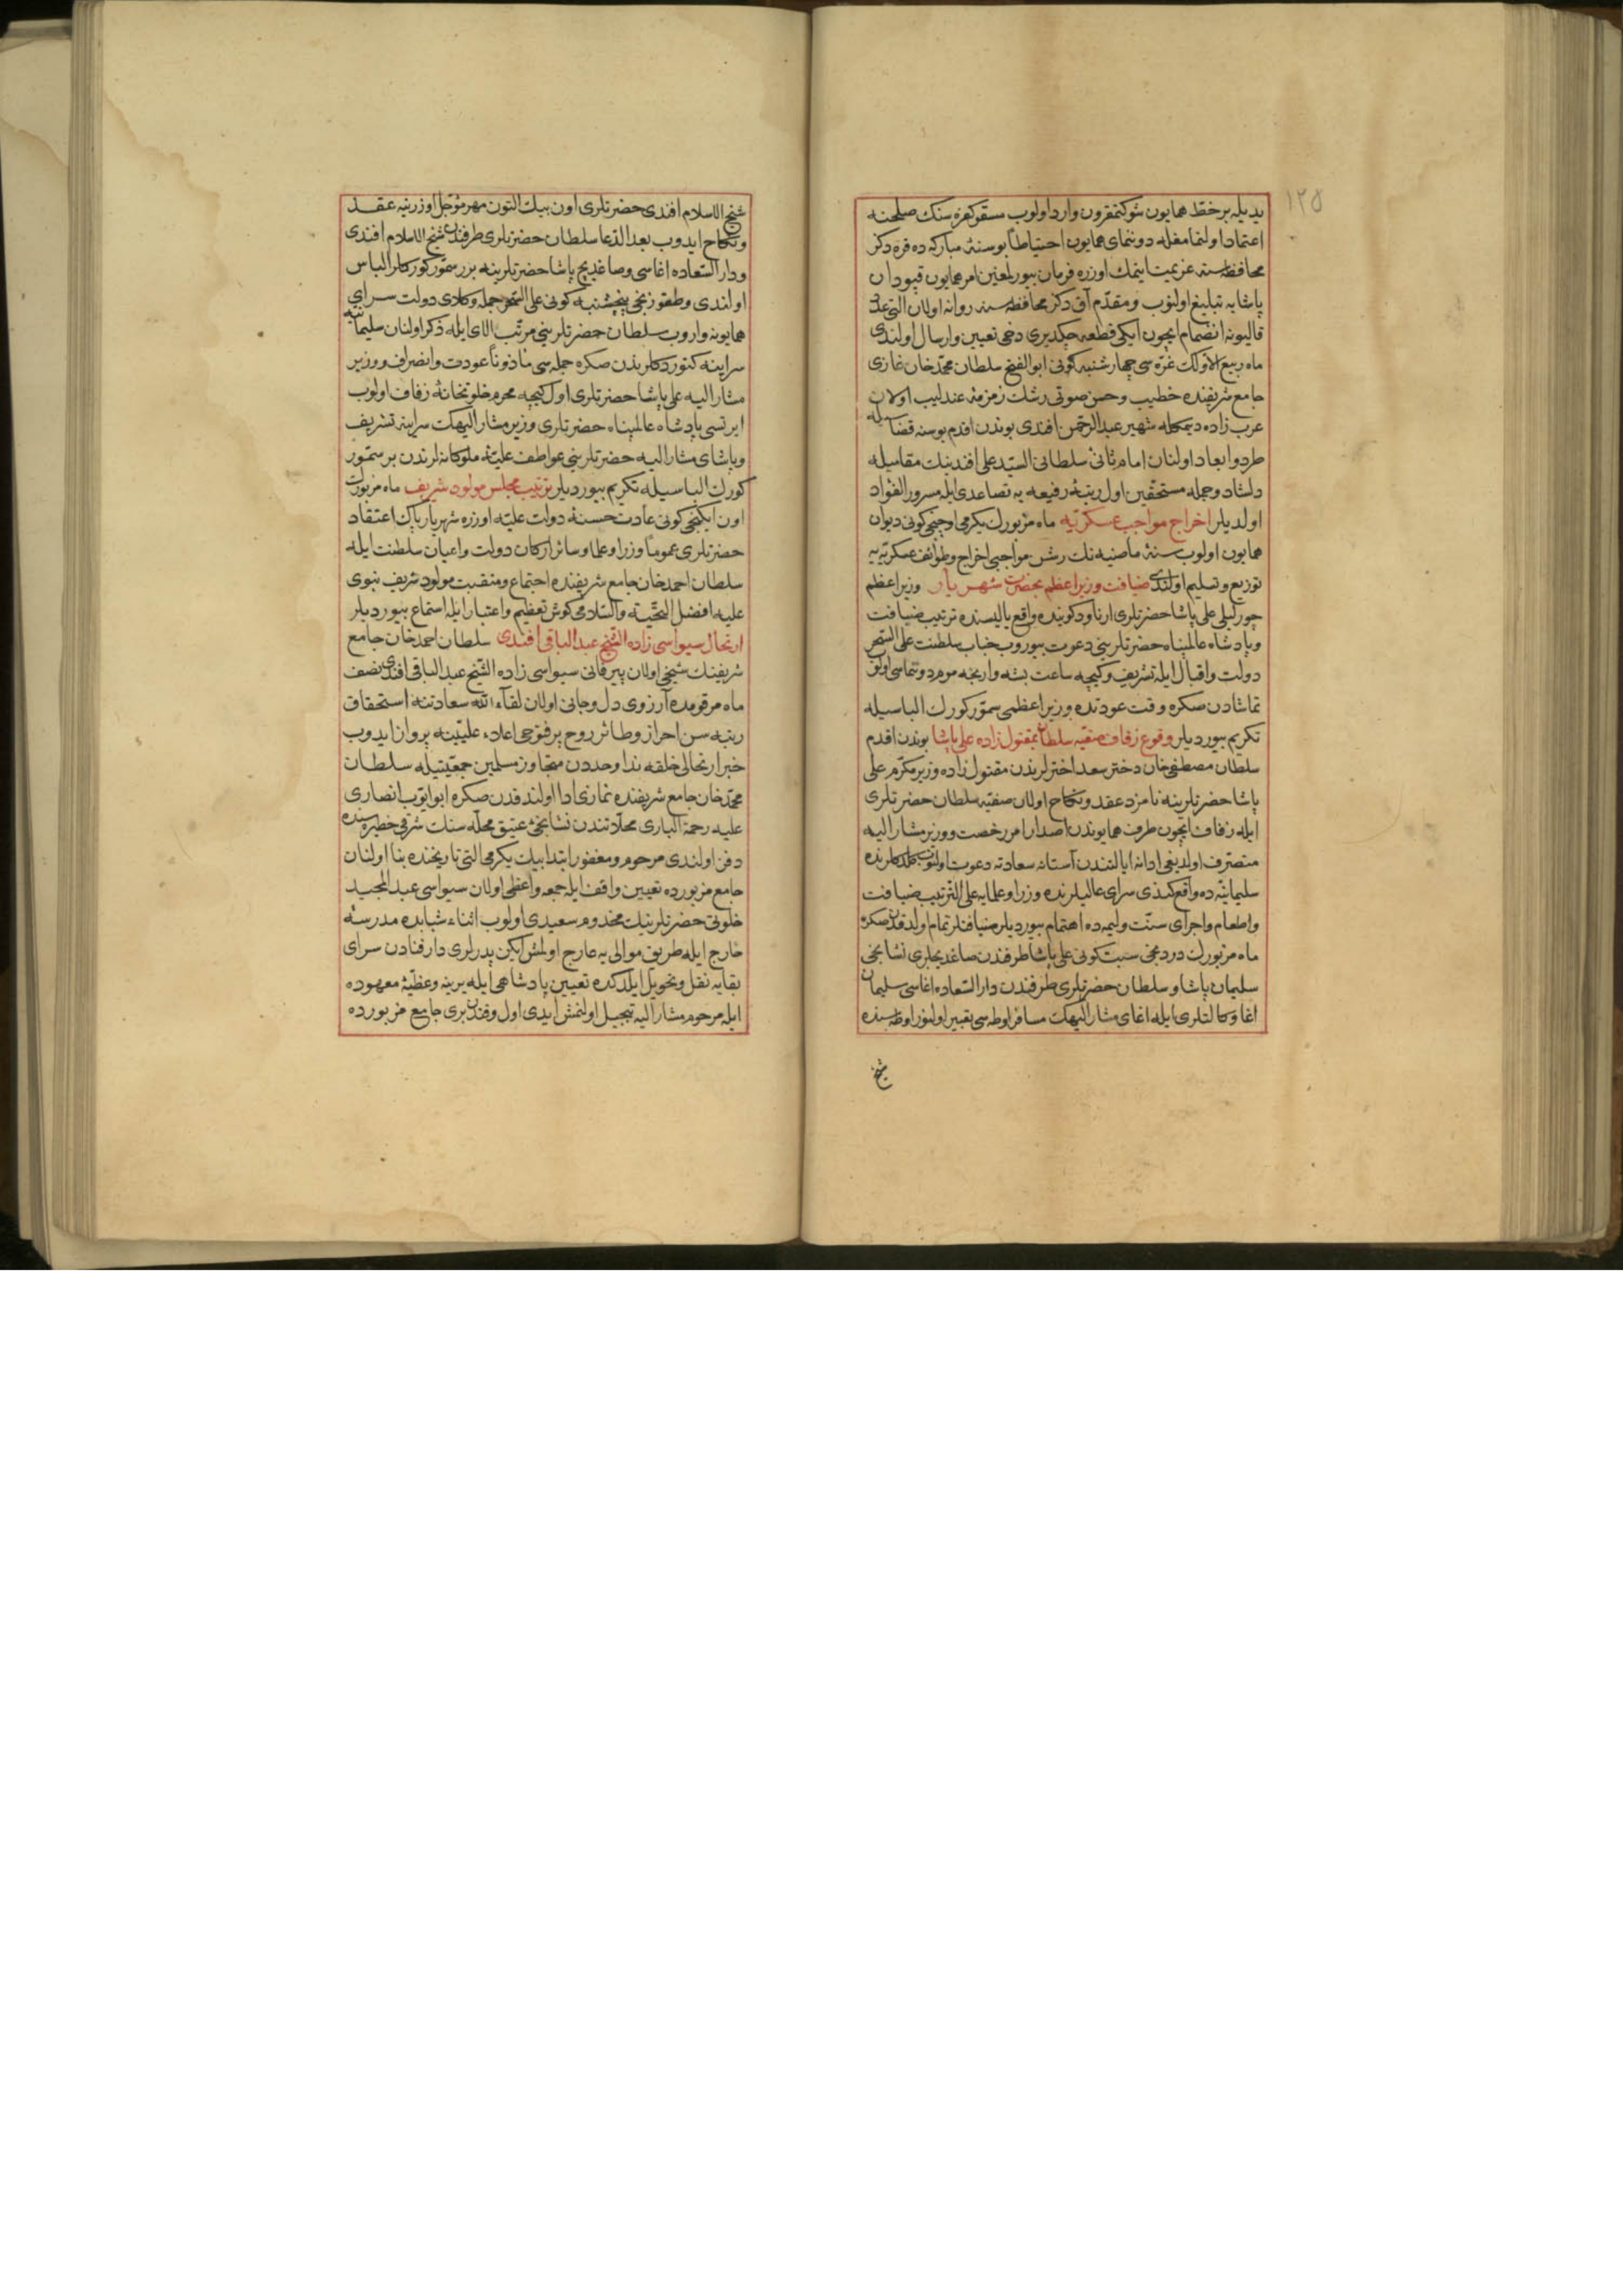 ١٢٥
يديله بر خط همايون شوكتمقرون وارد اولوب مسقو كفره سنك صلحنه
اعتماد اولنمامغله دوننماى همايون احتياطاً بو سنۀ مباركه ده قره دكز
محافظه سنه عزيمت ايتمك اوزره فرمان بيوريلمغين امر همايون قپودان
پاشايه تبليغ اولنوب ومقدم آق دكز محافظه سنه روانه اولان التى عدد
قاليونه انضمام ايچون ايكى قطعه چكديرى دخى تعيين وارسال اولندى
ماه ربيع الاولك غره سى چهارشنبه كونى ابو الفتح سلطان محمد خان غازى
جامع شريفنده خطيب وحسن صوتى رشك زمزمۀ عندليب اولان
عرب زاده ديمكله شهير عبد الرحمن افندى بوندن اقدم بوسنه قضاسيله
طرد وابعاد اولنان امام ثانئ سلطانى السيد على افندينك مقامیله
دلشاد وجمله مستحقين اول رتبۀ رفيعه يه تصاعدى ايله مسرور الفؤاد
اولديلر اخراج مواجب عسكريه ماه مزبورك يكرمى اوچنجى كونى ديوان
همايون اولوب سنۀ ماضيه نك رشن مواجبى اخراج وطوائف عسكريه يه
توزيع وتسليم اولندى ضيافت وزير اعظم بحضرت شهريار وزير اعظم
چورليلى على پاشا حضرتلرى ارناود كوينده واقع ياليسنده ترتيب ضيافت
وپادشاه عالمپناه حضرتلرينى دعوت بيوروب جناب سلطنت على السحر
دولت واقبال ايله تشريف وكيجه ساعت بشه وارنجه موم دوننماسى اولوب
تماشادن صكره وقت عودتده وزير اعظمى سمور كورك الباسيله
تكريم بيورديلر وقوع زفاف صفيه سلطان بمقتول زاده على پاشا بوندن اقدم
سلطان مصطفى خان دختر سعد اخترلرندن مقتول زاده وزير مكرم على
پاشا حضرتلرينه نامزد عقد ونكاح اولان صفيه سلطان حضرتلرى
ايله زفاف ايچون طرف همايوندن اصدار امر رخصت ووزير مشار اليه
متصرف اولديغى ادانه ايالتندن آستانه سعادته دعوت اولنوب
سليمانيه ده واقع كندى سراى عاليلرنده وزرا وعلمايه على الترتيب ضيافت
واطعام واجراى سنت وليمه ده اهتمام بيورديلر ضيافتلر تمام اولدقدن صكره
ماه مزبورك دردنجى سبت كونى على پاشا طرفندن صاغديجلرى نشانجى
سليمان پاشا وسلطان حضرتلرى طرفندن دار السعاده اغاسى سليمان
اغا وكالتلرى ايله اغاى مشار اليهك مسافر اوطه سى تعبير اولنور اوطه سنده
شيخ
شيخ الاسلام افندى حضرتلرى اون بيك التون مهر مؤجل اوزرينه عقد
ونكاح ايدوب بعد الدعا سلطان حضرتلرى طرفندن شيخ الاسلام افندى
ودار السعاده اغاسى وصاغديج پاشا حضرتلرينه برر سمور كوركلر الباس
اولندى وطقوزنجى پنجشنبه كونى على السحر جمله وكلاى دولت سراى
همايونه واروب سلطان حضرتلرينى مرتب الاى ايله ذكر اولنان سليمانيه
سراينه كتوردكلرندن صكره جمله سى مأذوناً عودت وانصراف ووزير
مشار اليه على پاشا حضرتلرى اول كيجه محرم خلوتخانۀ زفاف اولوب
ايرتسى پادشاه عالمپناه حضرتلرى وزير مشار اليهك سراينه تشريف
وپاشاى مشار اليه حضرتلرينى عواطف عليۀ ملوكانه لرندن بر سمور
كورك الباسيله تكريم بيورديلر ترتيب مجلس مولود شريف ماه مزبورك
اون ايكنجى كونى عادت حسنۀ دولت عليه اوزره شهريار پاك اعتقاد
حضرتلرى عموماً وزرا وعلما وسائر اركان دولت واعيان سلطنت ايله
سلطان احمد خان جامع شريفنده اجتماع ومنقبت مولود شريف نبوى
عليه افضل التحية والسلامى كوش تعظيم واعتبار ايله استماع بيورديلر
ارتحال سيواسى زاده الشيخ عبد الباقى افندى سلطان احمد خان جامع
شريفنك شيخى اولان پير فانى سيواسى زاده الشيخ عبد الباقى افندى نصف
ماه مرقومده آرزوى دل وجانى اولان لقاء الله سعادتنه استحقاق
رتبه سن احراز وطائر روح پر فتوحى اعلاء عليينه پرواز ايدوب
خبر ارتحالى خلقه ندا وحددن متجاوز مسلمين جمعيتيله سلطان
محمد خان جامع شريفنده نمازى ادا اولندقدن صكره ابو ايوب انصارى
عليه رحمة البارى محلاتندن نشانجئ عتيق محله سنك شرقى حظيره سنده
دفن اولندى مرحوم ومغفور ابتدا بيك يكرمى التى تاريخنده بنا اولنان
جامع مزبورده تعيين واقف ايله جمعه واعظى اولان سيواسى عبد المجيد
خلوتى حضرتلرينك مخدوم سعيدى اولوب اثناء شبابده مدرسۀ
خارج ايله طريق موالى يه عارج اولمش ايكن پدرلرى دار فنادن سراى
بقايه نقل وتحويل ايلدكده تعيين پادشاهى ايله يرينه وعظيۀ معهوده
ايله مرحوم مشار اليه تبجيل اولنمش ايدى اول وقتدن برى جامع مزبورده